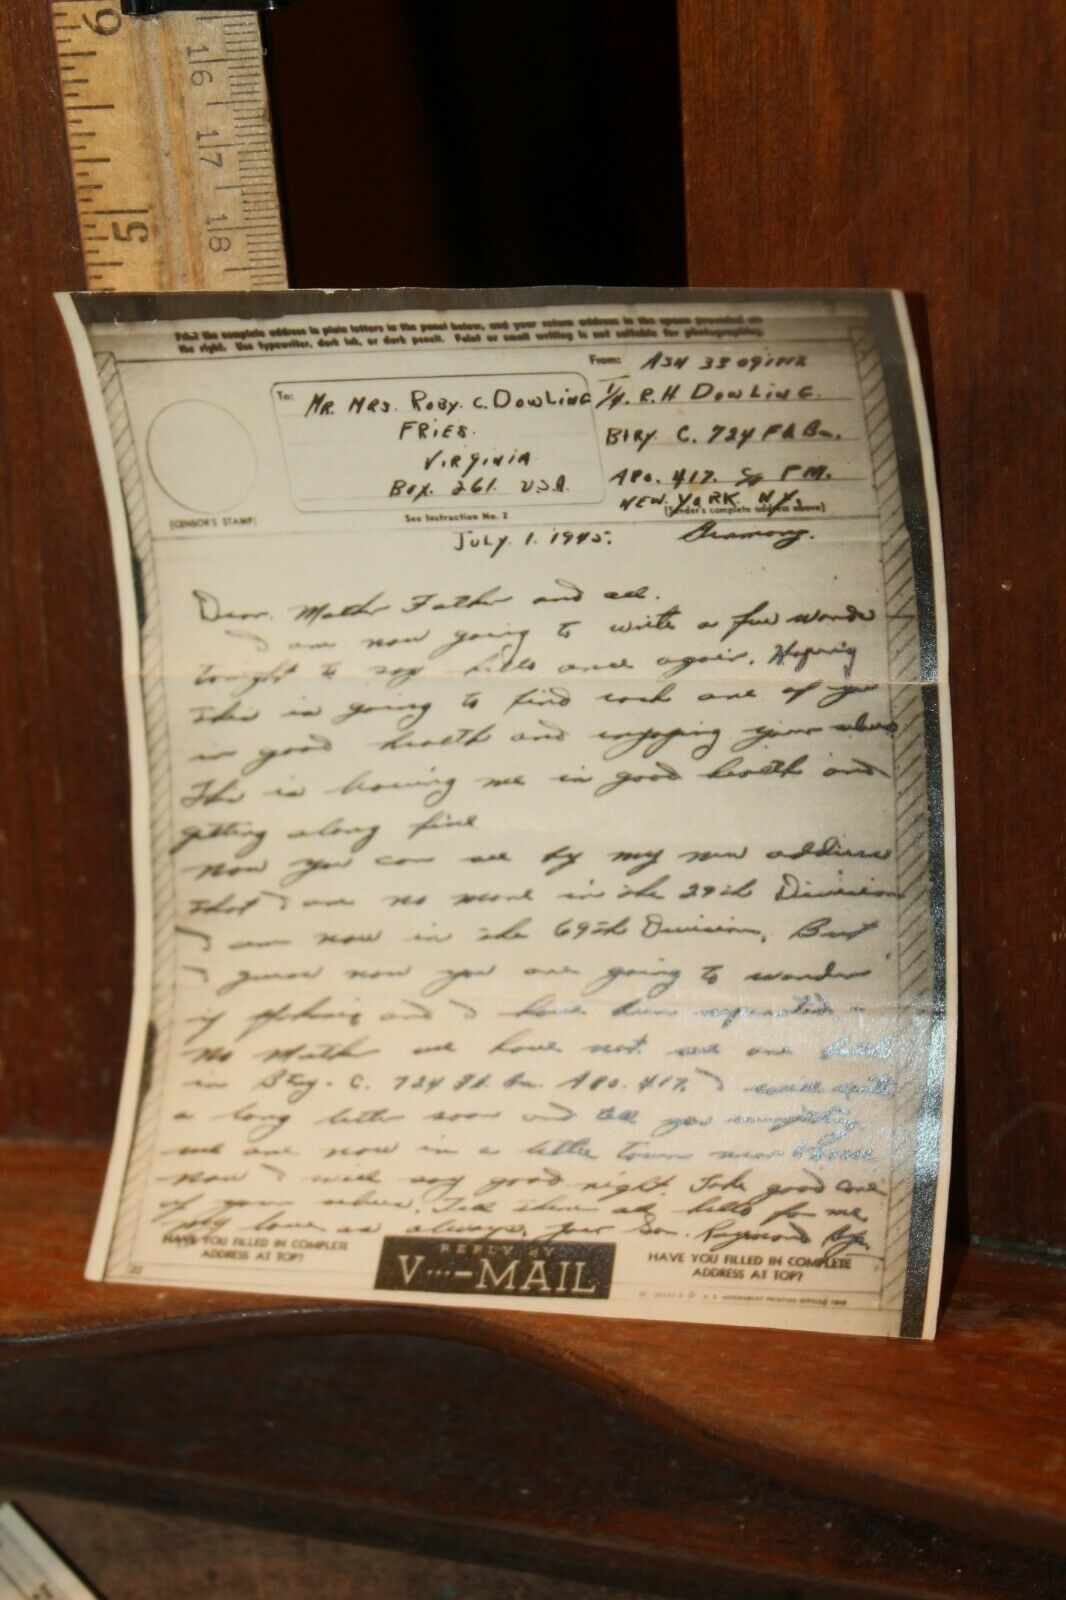 6
16
17
5
18
Print the complete address in plain letters in the panel below, and your return address in the space provided on
the right. Use typewriter, dark ink, or dark pencil. Faint or small writing is not suitable for photographing.
From: ASN
To: MR. MRS. ROBY. C. DOWLING
R. H DOWLING.
FRIES.
BTRY C. 724 FA Bn.
VIRGINIA
APO. 417. c/o P M.
BOX. 261. U.S.A.
NEW. YORK. N.Y.
(CENSOR'S STAMP)
See Instruction No. 2
(Sender's complete address above)
JULY. 1. 1945.
Germany.
Dear. Mother Father and all.
I am now going to write a few words
tonight to say hello once again. Hoping
this is going to find each one of you
in good health and enjoying your selves
This is leaving me in good health and
getting along fine
Now you can see by my new address
that I am no more in the 29th Division
I am now in the 69th Division, But
I guess now you are going to wonder
if and I have been separated.
No Mother we have not. we are
in Btry. C. 724 Fd. Bn. APO. 417. I will write
a long letter soon and tell you everything.
we are now in a little town near
Now I will say good night. Take good care
of your selves. Tell them all hello for me.
My love as always, your Son. Raymond
HAVE YOU FILLED IN COMPLETE
ADDRESS AT TOP?
REPLY BY
V···—MAIL
HAVE YOU FILLED IN COMPLETE
ADDRESS AT TOP?
U. S. GOVERNMENT PRINTING OFFICE